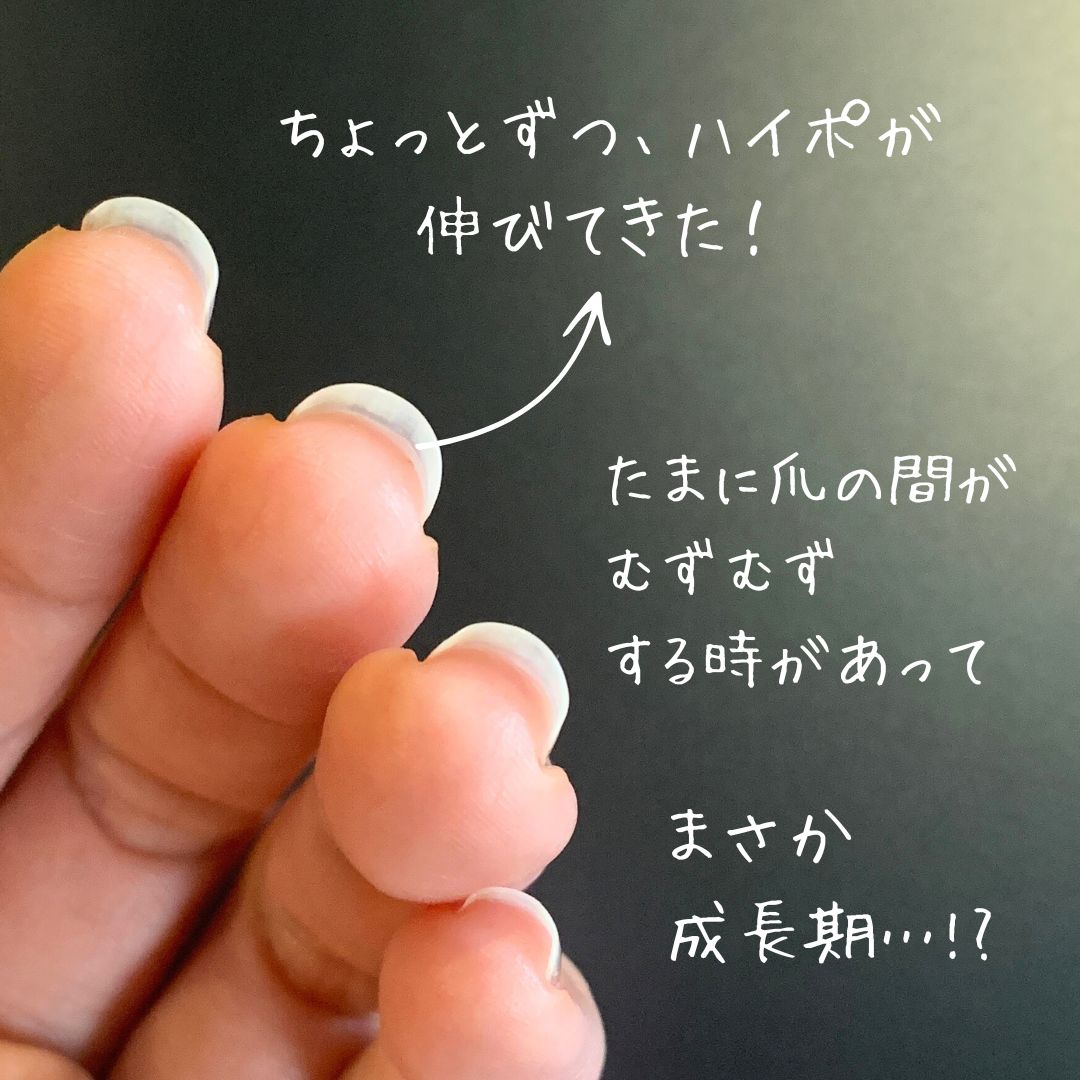 ちょっとずつ、ハイポが
伸びてきた!
たまに爪の間が
むずむず
する時があって
まさか
成長期…!?